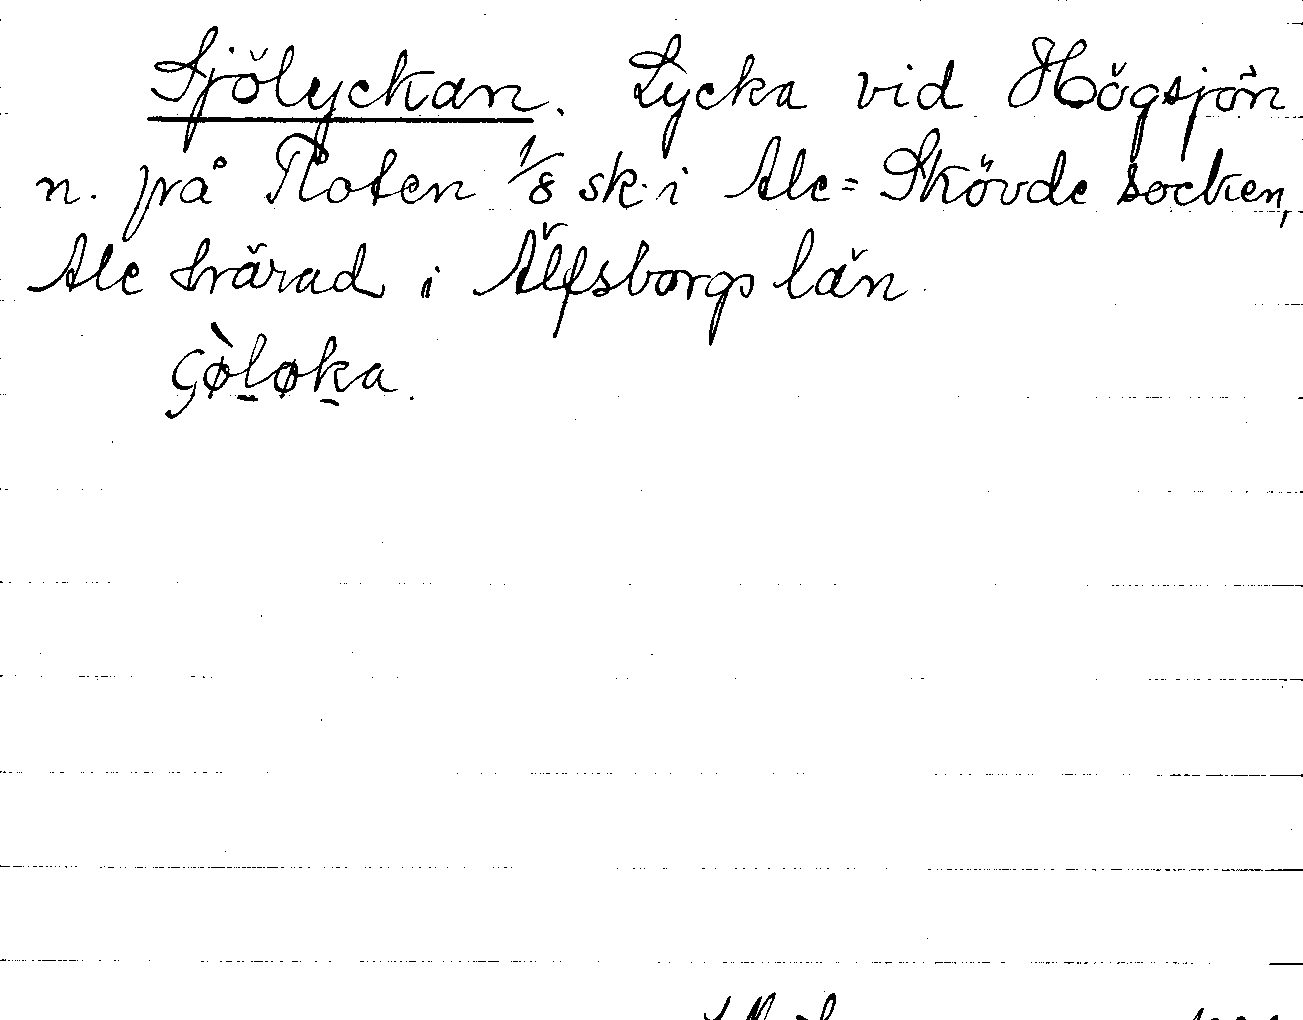 Sjölyckan. Lycka vid Högsjön
n. på Floten 1/8 sk. i Ale=Skövde socken,
Ale härad i Älfsborgs län
ʂøl̠øk̠a.